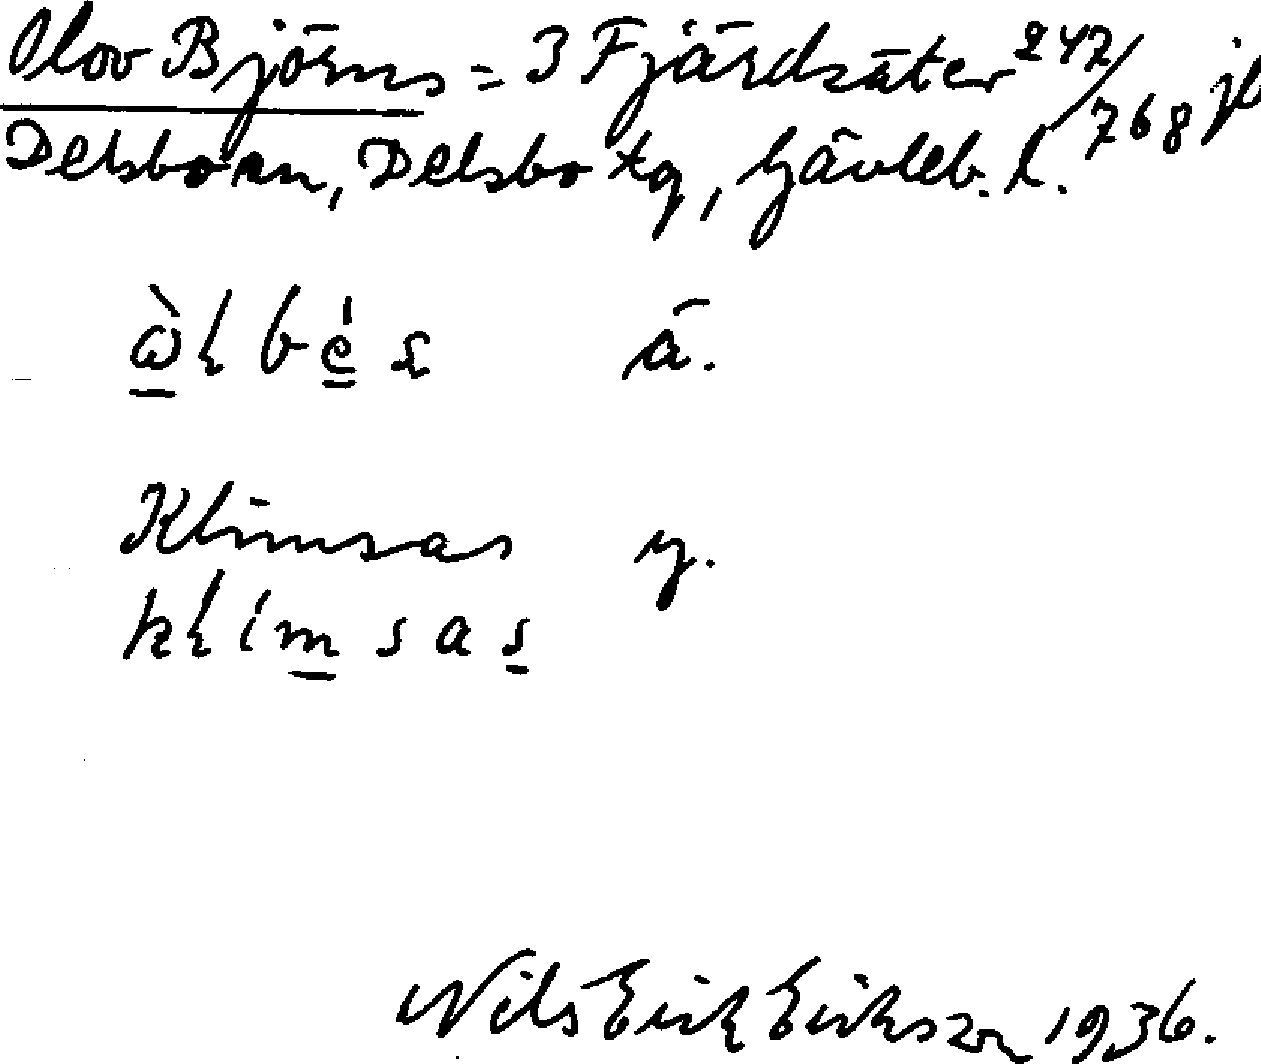 Olov Björns = 3 Fjärdsäter 242/768 jb
Delsbo sn, Delsbo tg, Gävleb. l.
ä.
Klimsas y.
klimsas
Nils Erik Erikson 1936.